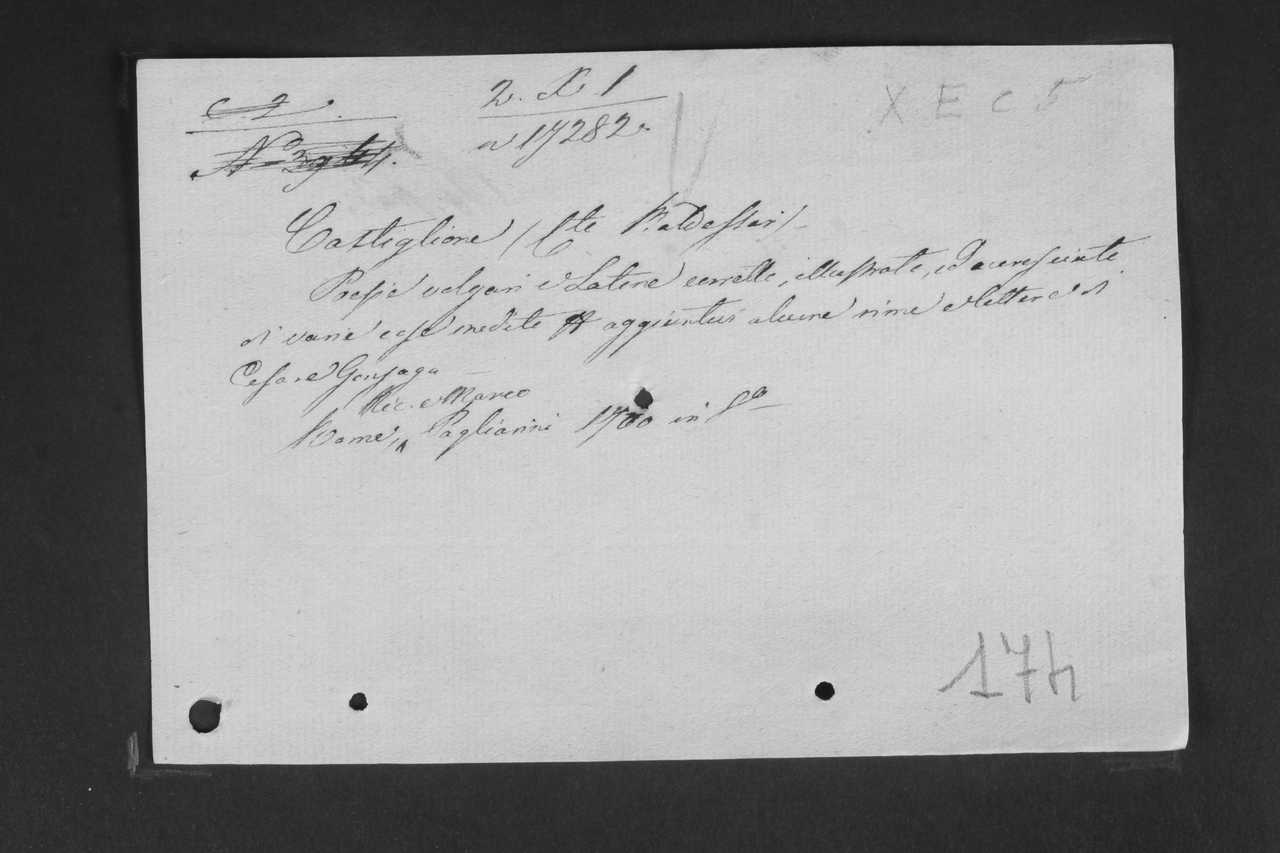 C 2.
2. X. 1
X E C 5
N° 3944.
n 17282.
Castiglione /Cte Baldessar/
Poesie volgari e Latine corrette, illustrate, ed accresciute
di varie cose inedite aggiuntevi alcune rime e lettere di
Cesare Gonzaga
Nic. e Marco
Rome, Pagliarini 1760 in 8°
174